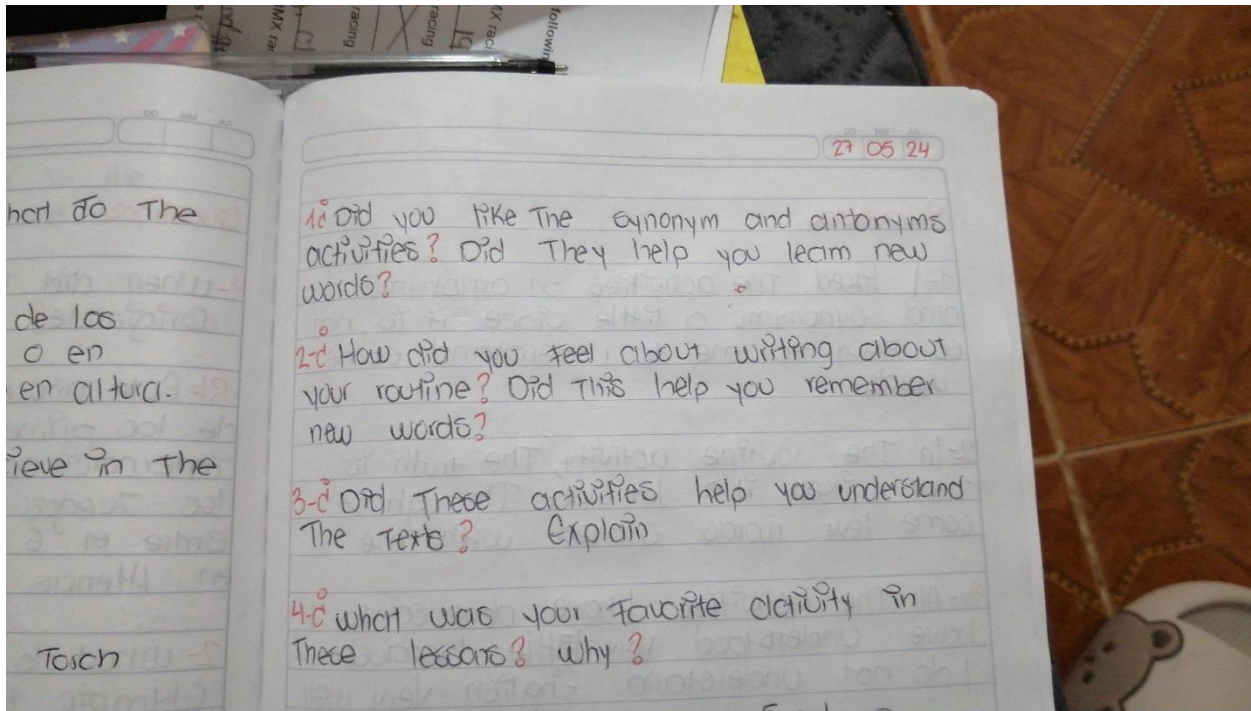 following
MX racing
racing
MX rac
27 05 24
do The
de las
o en
en altura.
in The
Torch
1¿ Did you like The synonym and antonyms
activities? Did They help you learn new
words?
2-¿ How did you feel about writing about
your routine? Did This help you remember
new words?
3-¿ Did These activities help you understand
The Texts? Explain
4-¿ What was your favorite activity in
These lessons? Why?